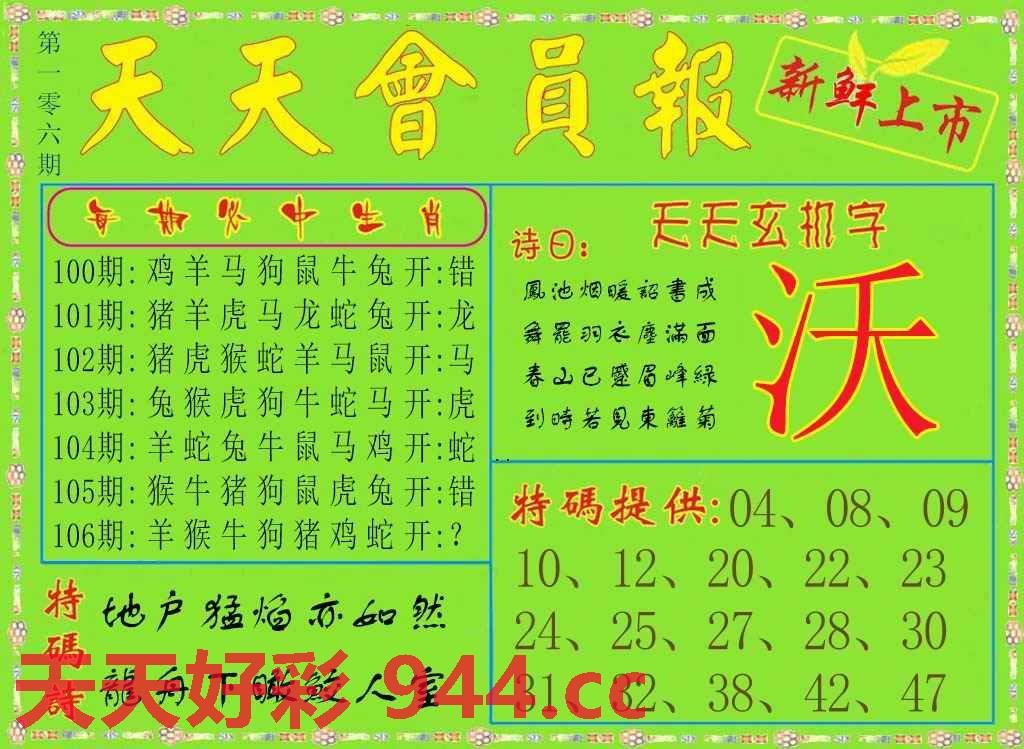 第一零六期
天天會員報
新鲜上市
每期必中生肖
100期: 鸡羊马狗鼠牛兔开:错
101期: 猪羊虎马龙蛇兔开:龙
102期: 猪虎猴蛇羊马鼠开:马
103期: 兔猴虎狗牛蛇马开:虎
104期: 羊蛇兔牛鼠马鸡开:蛇
105期: 猴牛猪狗鼠虎兔开:错
106期: 羊猴牛狗猪鸡蛇开:?
天天玄机字
诗曰:
鳳池烟暖詔書成
舞罷羽衣塵滿面
春山已蹙眉峰綠
到時若見東籬菊
沃
特碼提供: 04、08、09
10、12、20、22、23
24、25、27、28、30
31、32、38、42、47
特碼詩
地户猛焰亦如然
龍舟下瞰鮫人室
天天好彩 944.cc